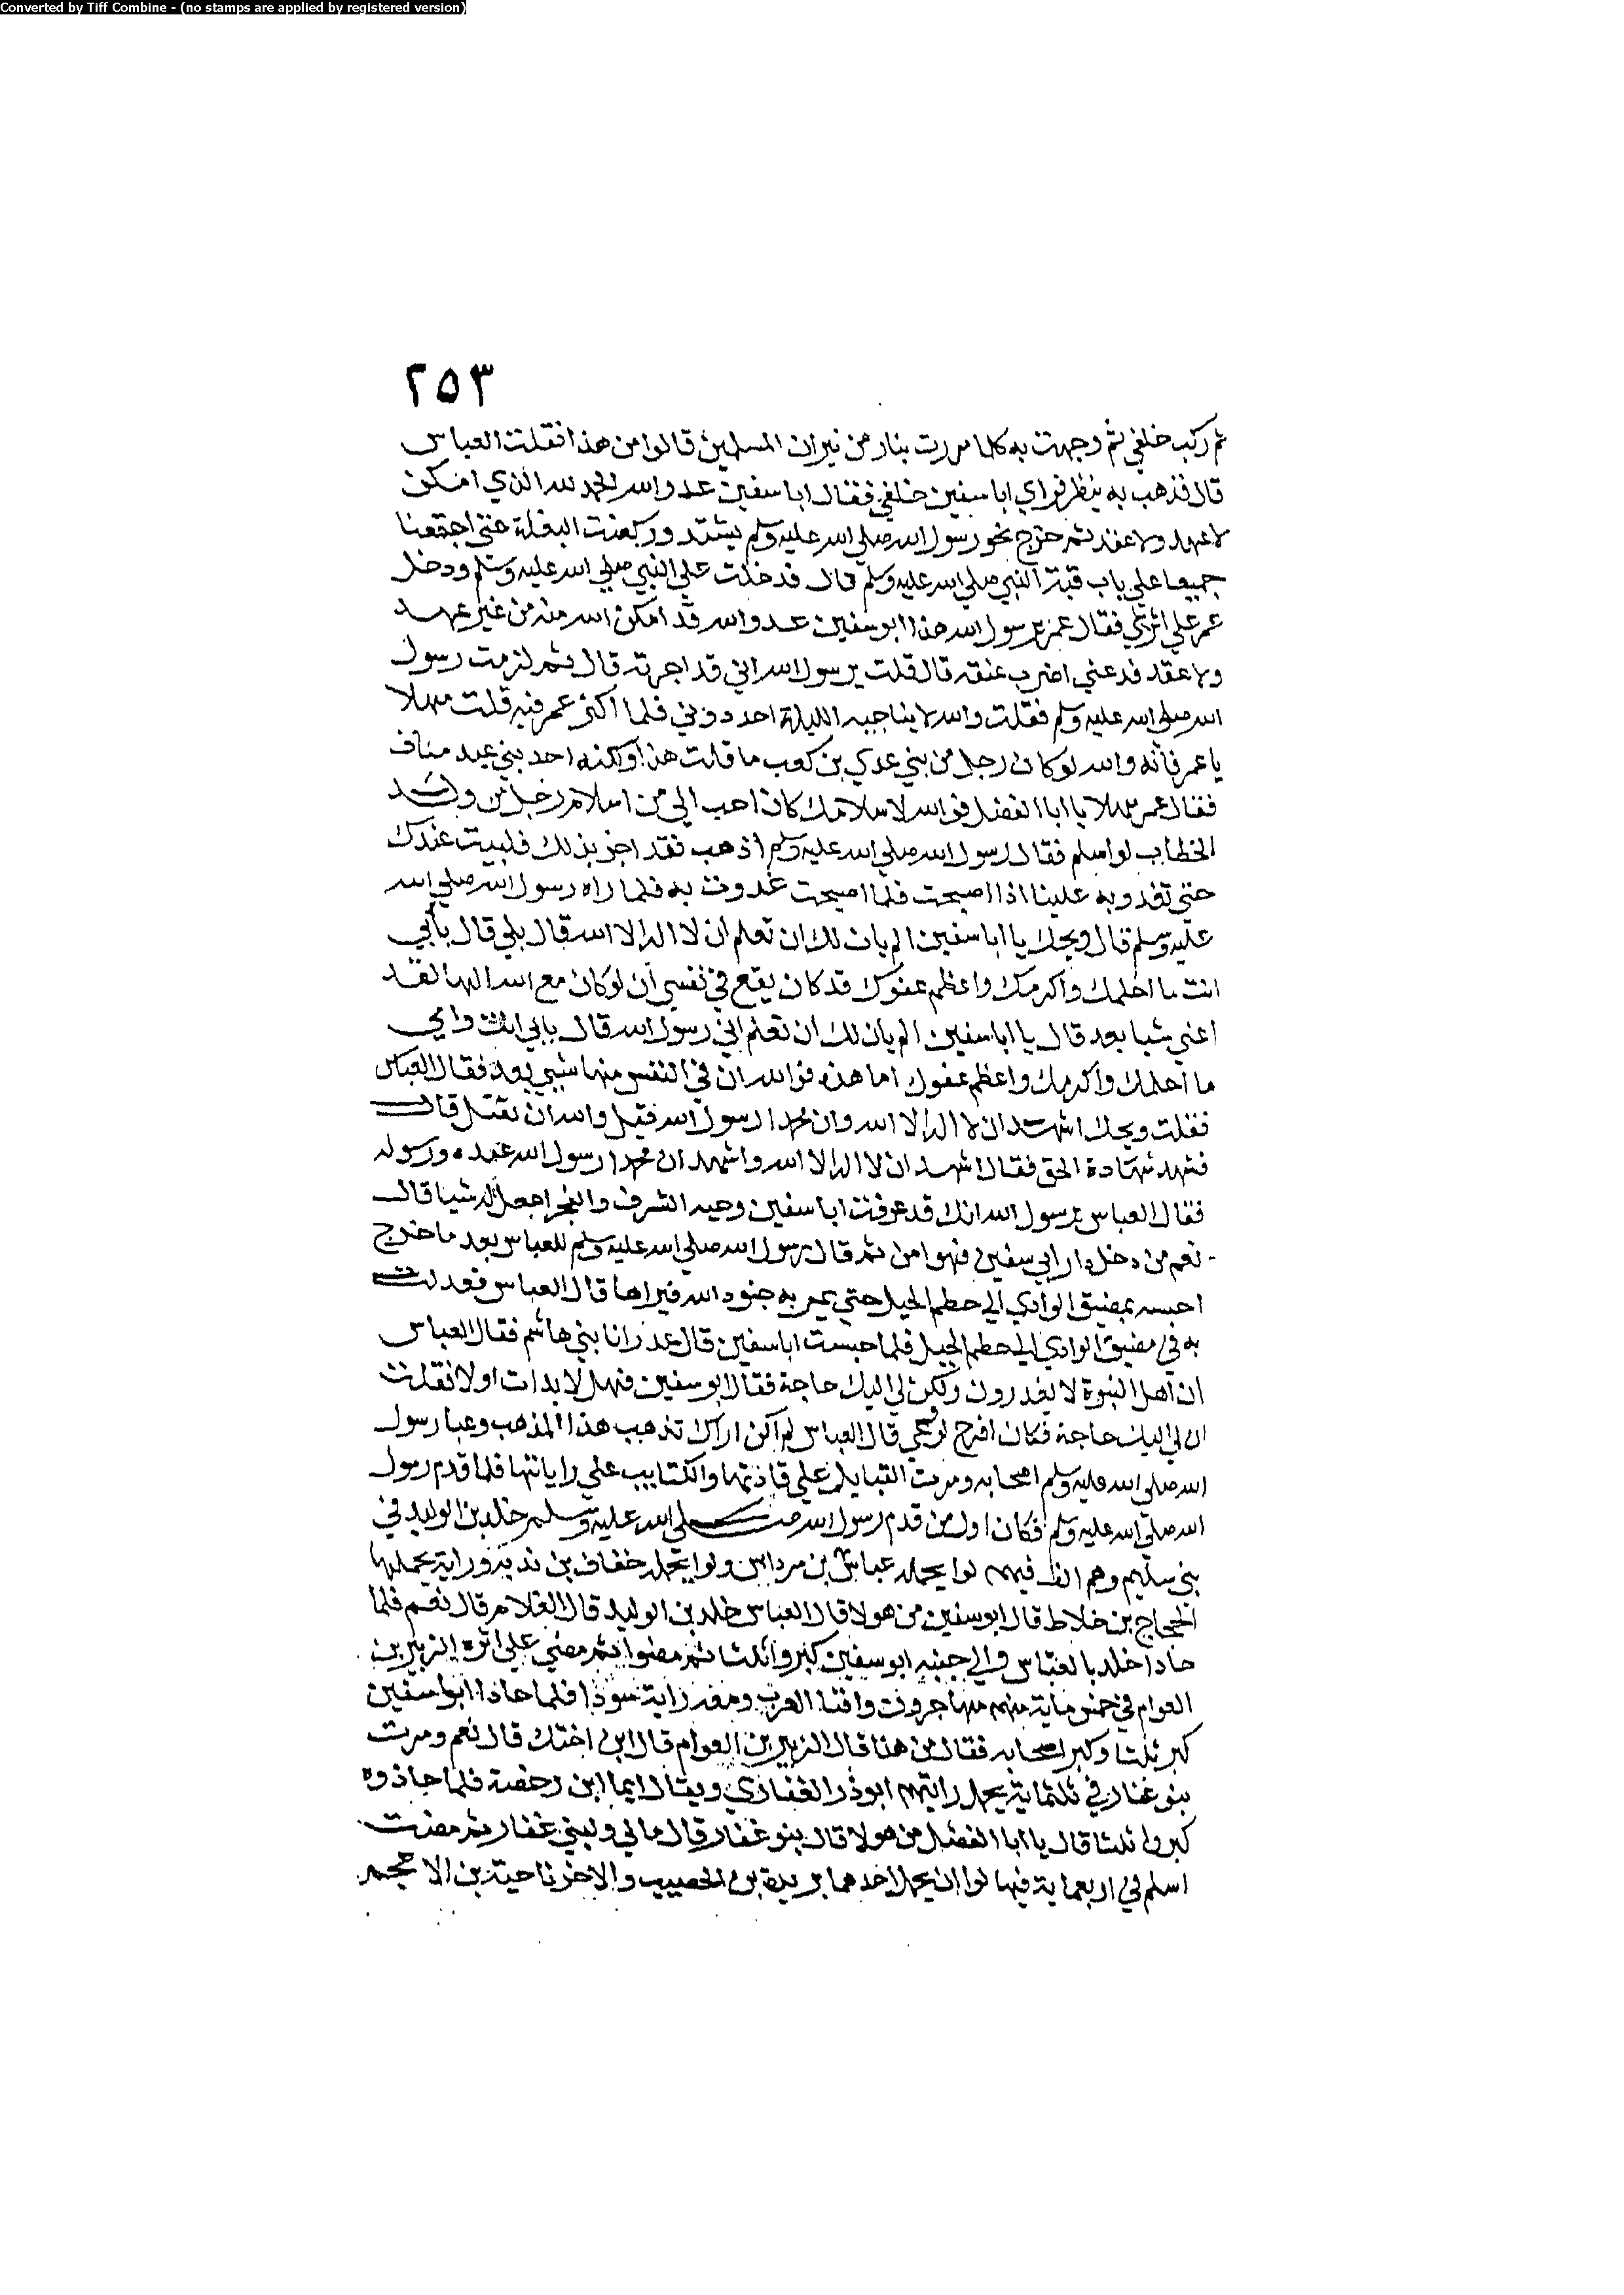 Converted by Tiff Combine - (no stamps are applied by registered version)
٢٥٣
ثم ركب خلفي ثم وجهت به كلما مررت بنار من نيران المسلمين قالوا من هذا فقلت العباس
قال فذهب به ينظر فراي ابا سفين خلفي فقال ابا سفين عدو الله الحمد لله الذي امكن
لا عهد ولا عقد ثم خرج نحو رسول الله صلي الله عليه وسلم يشتد وركضت البغلة حتي اجتمعنا
جميعا علي باب قبة النبي صلي الله عليه وسلم قال فدخلت علي النبي صلي الله عليه وسلم ودخل
عمر علي اثري فقال عمر يرسول الله هذا ابو سفين عدو الله قد امكن الله منه من غير عهد
ولا عقد فدعني اضرب عنقه قال قلت يرسول الله اني قد اجرته قال ثم لزمت رسول
الله صلي الله عليه وسلم فقلت والله لا يناجيه الليلة احد دوني فلما اكثر عمر فيه قلت مهلا
يا عمر فانه والله لو كان رجل من بني عدي بن كعب ما قلت هذا ولكنه احد بني عبد مناف
فقال عمر مهلا يا ابا الفضل فوالله لاسلامك كان احب الي من اسلام رجل من ولد
الخطاب لو اسلم فقال رسول الله صلي الله عليه وسلم اذهب فقد اجز بذلك فليبت عندك
حتي تغدو به علينا اذا اصبحت فلما اصبحت غدوت به فلما راه رسول الله صلي الله
عليه وسلم قال ويحك يا ابا سفين الم يان لك ان تعلم ان لا اله الا الله قال بلي قال بأبي
انت ما احلمك واكرمك واعظم عفوك قد كان يقع في نفسي أن لو كان مع الله الها لقد
اغني شيا بعد قال يا ابا سفين الم يان لك ان تعلم اني رسول الله قال بابي انت وامي
ما احلمك واكرمك واعظم عفوك اما هذه فوالله ان في النفس منها شيي بعد فقال العباس
فقلت ويحك اشهد ان لا اله الا الله وان محمدا رسول الله قبل والله ان تقتل قال
فشهد شهادة الحق فقال اشهد ان لا اله الا الله واشهد ان محمدا رسول الله عبده ورسوله
فقال العباس يرسول الله انك قد عرفت ابا سفين وحبه الشرف والفخر اجعل له شيا قال
نعم من دخل دار ابي سفين فهو امن ثم قال رسول الله صلي الله عليه وسلم للعباس بعد ما خرج
احبسه بمضيق الوادي الي حطم الجبل حتي يمر به جنود الله فيراها قال العباس فعدلت
به في مضيق الوادي الي حطم الجبل فلما حبست ابا سفين قال غدرا يا بني هاشم فقال العباس
ان اهل النبوة لا يغدرون ولكن لي اليك حاجة فقال ابو سفين فهلا بدات اولا فقلت
ان لي اليك حاجة فكان افرج لروعي قال العباس لم اكن اراك تذهب هذا المذهب وعبا رسول
الله صلي الله عليه وسلم اصحابه ومرت القبايل علي قادتها والكتايب علي راياتها فلما قدم رسول
الله صلي الله عليه وسلم فكان اول من قدم رسول الله صلي الله عليه وسلم خلد بن الوليد في
بني سليم وهم الف فيهم لوا يحمله عباس بن مرداس ولوا يحمله خفاف بن ندبة وراية يحملها
الحجاج بن علاط قال ابو سفين من هولا قال العباس خلد بن الوليد قال الغلام قال نعم فلما
حاذا خلد بالعباس والي جنبه ابو سفين كبروا ثلثا ثم مضوا ثم مضي علي اثره الزبير بن
العوام في خمس ماية منهم مهاجرون وافنا العرب ومعه راية سودا فلما حاذا ابو سفين
كبر ثلثا وكبر اصحابه فقال من هذا قال الزبير بن العوام قال ابن اختك قال نعم ومرت
بنو غفار في ثلثماية يحمل رايتهم ابو ذر الغفاري ويقال ايما ابن رحضة فلما حاذوه
كبروا ثلثا قال يا ابا الفضل من هولا قال بنو غفار قال مالي ولبني غفار ثم مضت
اسلم في اربعماية فيها لواان يحمل احدهما بريدة بن الحصيب والاخر ناحية بن الاعجم